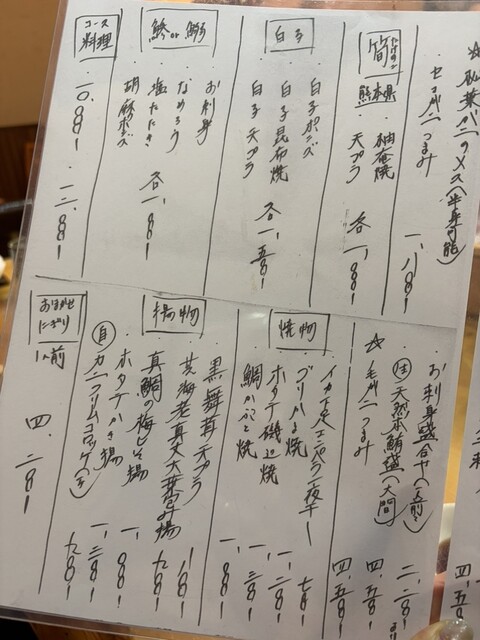 ☆松葉ガニのメス(半身可能)
・セコガニつまみ 一、八〇〇
筍 たけのこ
熊本県
・柚庵焼
・天プラ 各一、〇〇〇
白子
・白子ポンズ
・白子昆布焼
・白子天プラ 各一、五〇〇
鯵or鰯
・お刺身
・なめろう
・塩たたき
・胡麻ポンズ 各一、〇〇〇
コース料理
・一〇、〇〇〇
・一二、〇〇〇
・お刺身盛合せ(一人前を) 二、二〇〇より
・(注)天然本鮪盛(大間) 四、五〇〇
☆毛ガニつまみ 四、五〇〇
焼物
・イカ天然エンペラ一夜干し 七〇〇
・ブリかま焼 一、二〇〇
・ホタテ磯辺焼 一、三〇〇
・鯛かぶと焼 一、〇〇〇
揚物
・黒舞茸天プラ 八〇〇
・芝海老真丈大葉包み揚 九〇〇
・真鯛の梅しそ揚 一、〇〇〇
・ホタテかき揚 一、二〇〇
・(自)カニクリームコロッケ 九〇〇
おまかせにぎり
1人前
四、二〇〇